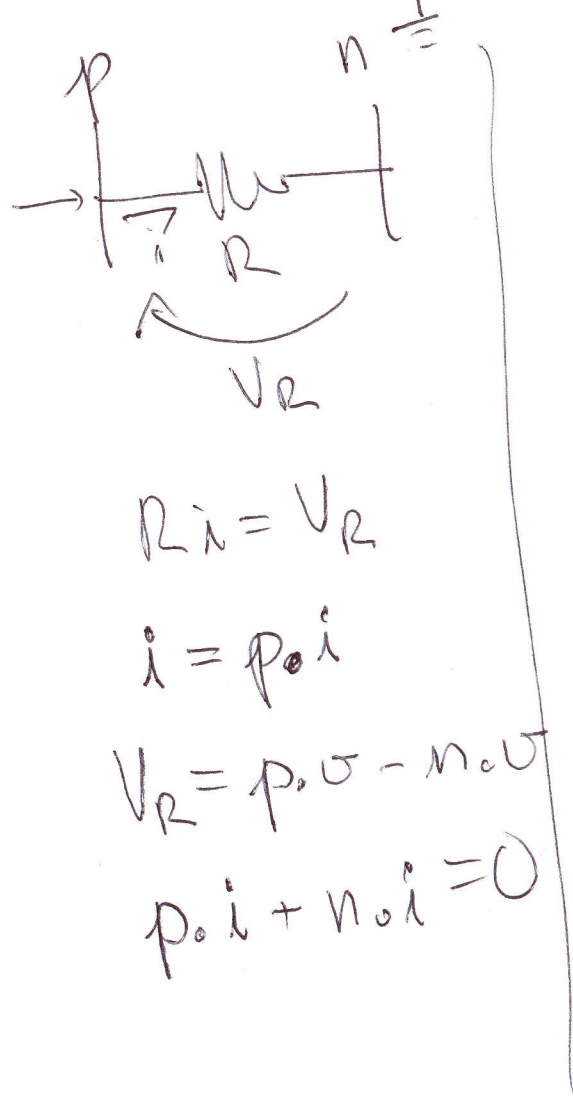 p n
i R
VR
Ri = VR
i = p.i
VR = p.v - n.v
p.i + n.i = 0